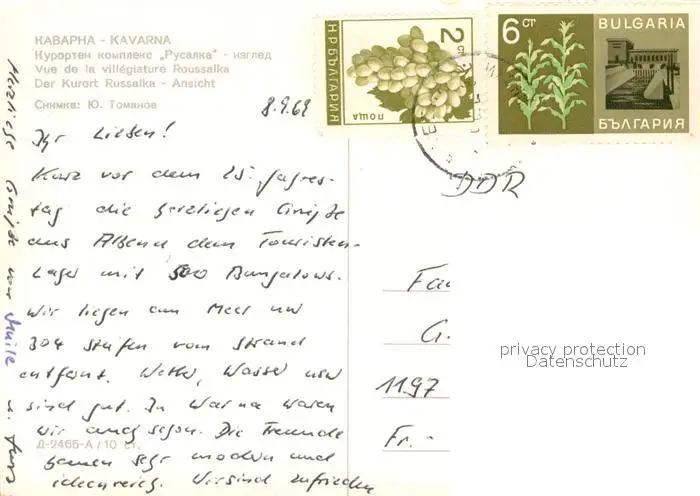 КАВАРНА - KAVARNA
Курортен комплекс „Русалка" - изглед
Vue de la villégiature Roussalka
Der Kurort Russalka - Ansicht
Снимка: Ю. Томанов
8.9.69
Ihr Lieben!
Kurz vor dem 25. Jahres-
tag die herzlichen Grüße
aus Albena dem Touristen-
Lager mit 500 Bungalows.
Wir liegen am Meer nur
304 Stufen vom Strand
entfernt. Wetter, Wasser usw
sind gut. In Warna waren
wir auch schon. Die Freunde
bauen sehr modern und
ideenreich. Wir sind zufrieden
Herzliche Grüße von
u.
Д-2465-А / 10 ст.
2 ст
НР БЪЛГАРИЯ
ПОЩА
6 СТ
BULGARIA
БЪЛГАРИЯ
DDR
Fa
G.
1197
Fr.-
privacy protection
Datenschutz